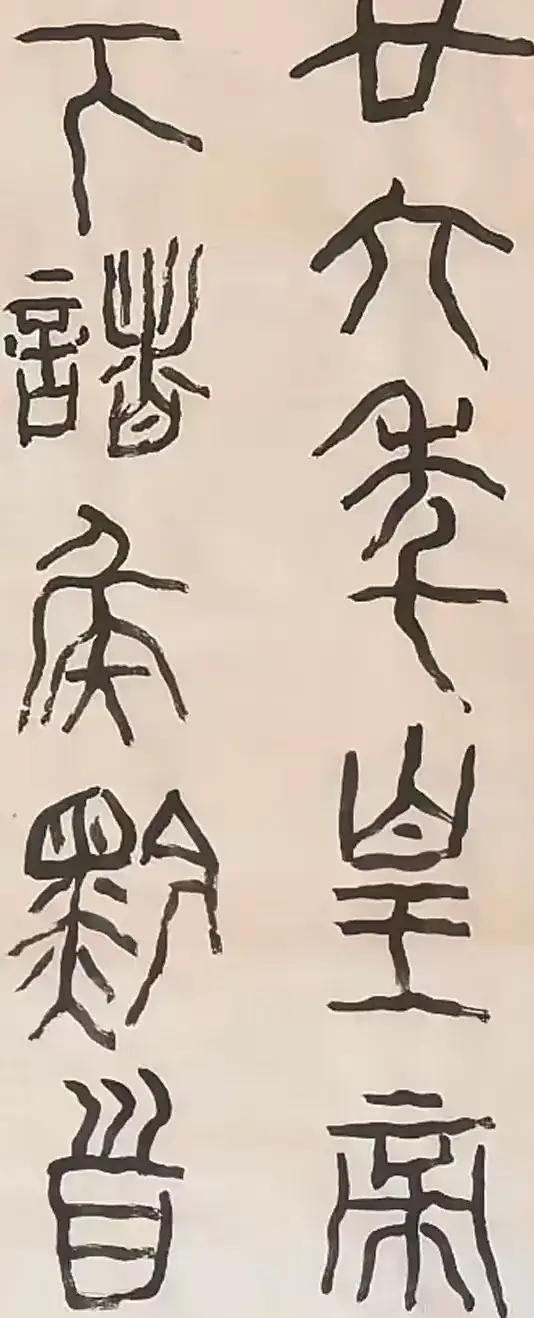 廿六年皇帝
下諸矦黔首